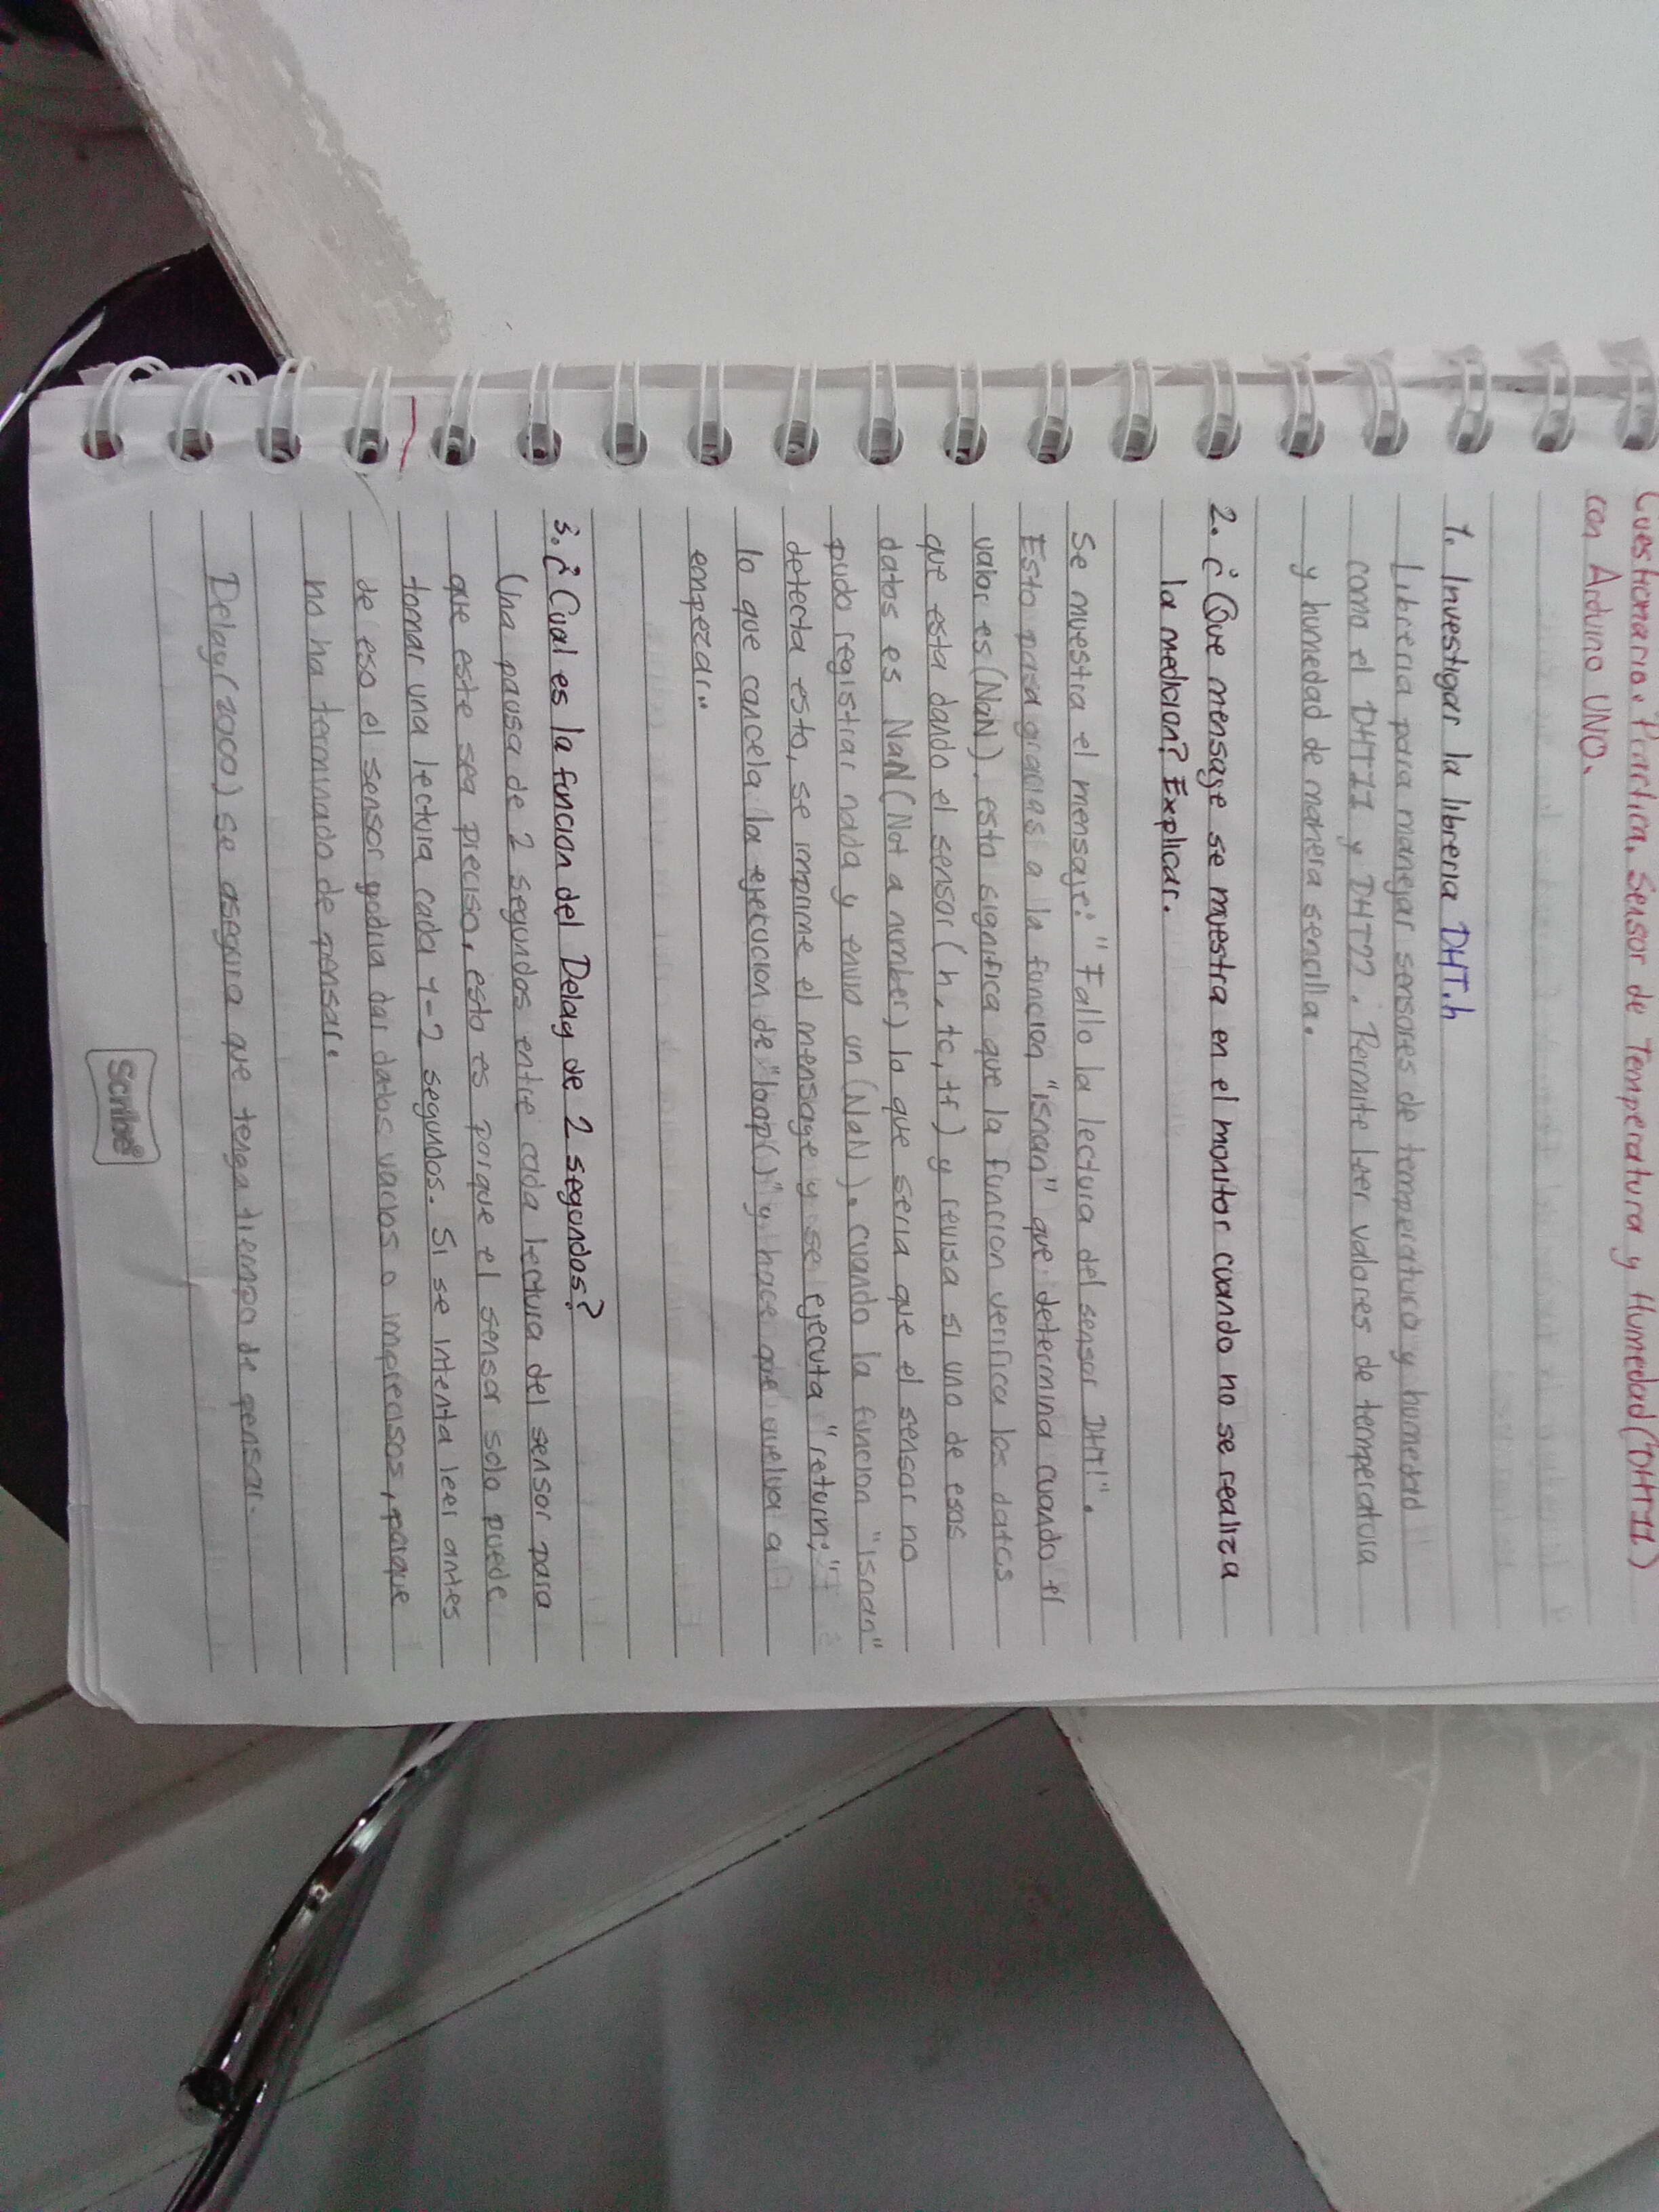 Cuestionario. Practica, Sensor de Temperatura y Humedad (DHT11)
con Arduino UNO.
1. Investigar la libreria DHT.h
Libreria para manejar sensores de temperatura y humedad
como el DHT11 y DHT22. Permite leer valores de temperatura
y humedad de manera sencilla.
2. ¿Que mensage se muestra en el monitor cuando no se realiza
la medicion? Explicar.
Se muestra el mensaje: "Fallo la lectura del sensor DHT!".
Esto pasa gracias a la funcion "isnan" que determina cuando el
valor es (NaN), esto significa que la funcion verifica los datos
que esta dando el sensor (h, tc, tf) y revisa si uno de esos
datos es NaN (Not a number) lo que seria que el sensor no
pudo registrar nada y envio un (NaN). cuando la funcion "isnan"
detecta esto, se imprime el mensage y se ejecuta "return;"
lo que cancela la ejecucion de "loop()" y hace que vuelva a
empezar.
3. ¿Cual es la funcion del Delay de 2 segundos?
Una pausa de 2 segundos entre cada lectura del sensor para
que este sea preciso, esto es porque el sensor solo puede
tomar una lectura cada 1-2 segundos. Si se intenta leer antes
de eso el sensor podria dar datos vacios o imprecisos, porque
no ha terminado de pensar.
Delay(2000) se asegura que tenga tiempo de pensar.
Scribe